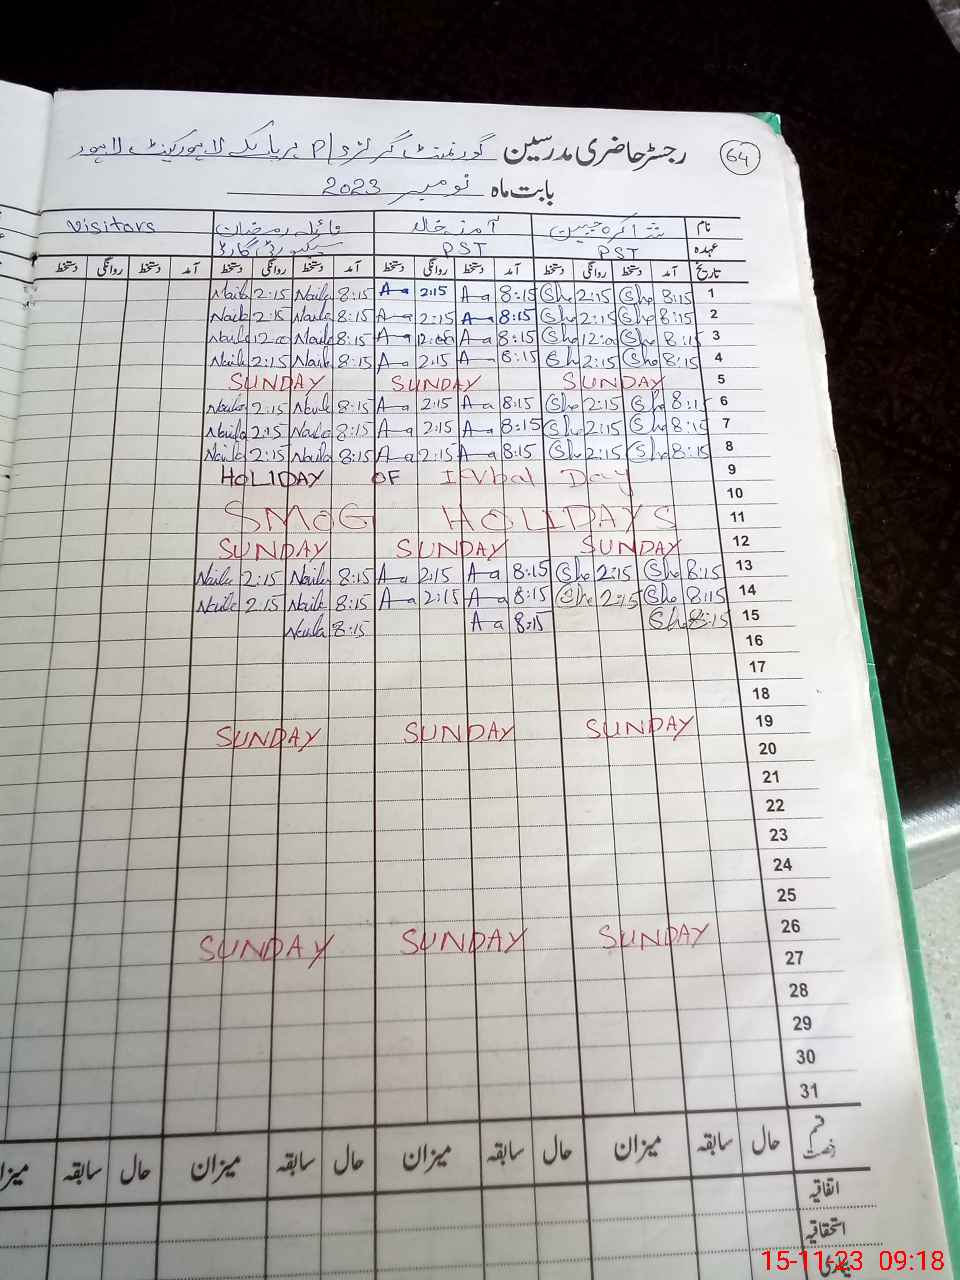 رجسٹر حاضری مدرسین گورنمنٹ گرلز P/S لاہور کینٹ لاہور 64
بابت ماہ نومبر 2023
نام آمنہ خالد Visitors
عہدہ PST PST سیکیورٹی گارڈ
تاریخ آمد دستخط روانگی دستخط آمد دستخط روانگی دستخط آمد دستخط روانگی دستخط آمد دستخط روانگی دستخط
1 8:15 She 2:15 She 8:15 A-a 2:15 A-a 8:15 Naila 2:15 Naila
2 8:15 She 2:15 She 8:15 A-a 2:15 A-a 8:15 Naila 2:15 Naila
3 8:15 She 12:00 She 8:15 A-a 12:00 A-a 8:15 Naila 12:00 Naila
4 8:15 She 2:15 She 8:15 A-a 2:15 A-a 8:15 Naila 2:15 Naila
5 SUNDAY SUNDAY SUNDAY
6 8:15 She 2:15 She 8:15 A-a 2:15 A-a 8:15 Naila 2:15 Naila
7 8:15 She 2:15 She 8:15 A-a 2:15 A-a 8:15 Naila 2:15 Naila
8 8:15 She 2:15 She 8:15 A-a 2:15 A-a 8:15 Naila 2:15 Naila
9 HOLIDAY OF Iqbal Day
10
11 SMOG HOLIDAYS
12 SUNDAY SUNDAY SUNDAY
13 8:15 She 2:15 She 8:15 A-a 2:15 A-a 8:15 Naila 2:15 Naila
14 8:15 She 2:15 She 8:15 A-a 2:15 A-a 8:15 Naila 2:15 Naila
15 8:15 She 8:15 A-a 8:15 Naila
16
17
18
19 SUNDAY SUNDAY SUNDAY
20
21
22
23
24
25
26 SUNDAY SUNDAY SUNDAY
27
28
29
30
31
قسم رخصت حال سابقہ میزان حال سابقہ میزان حال سابقہ میزان حال سابقہ میزان
اتفاقیہ
استحقاقیہ
15-11-23 09:18